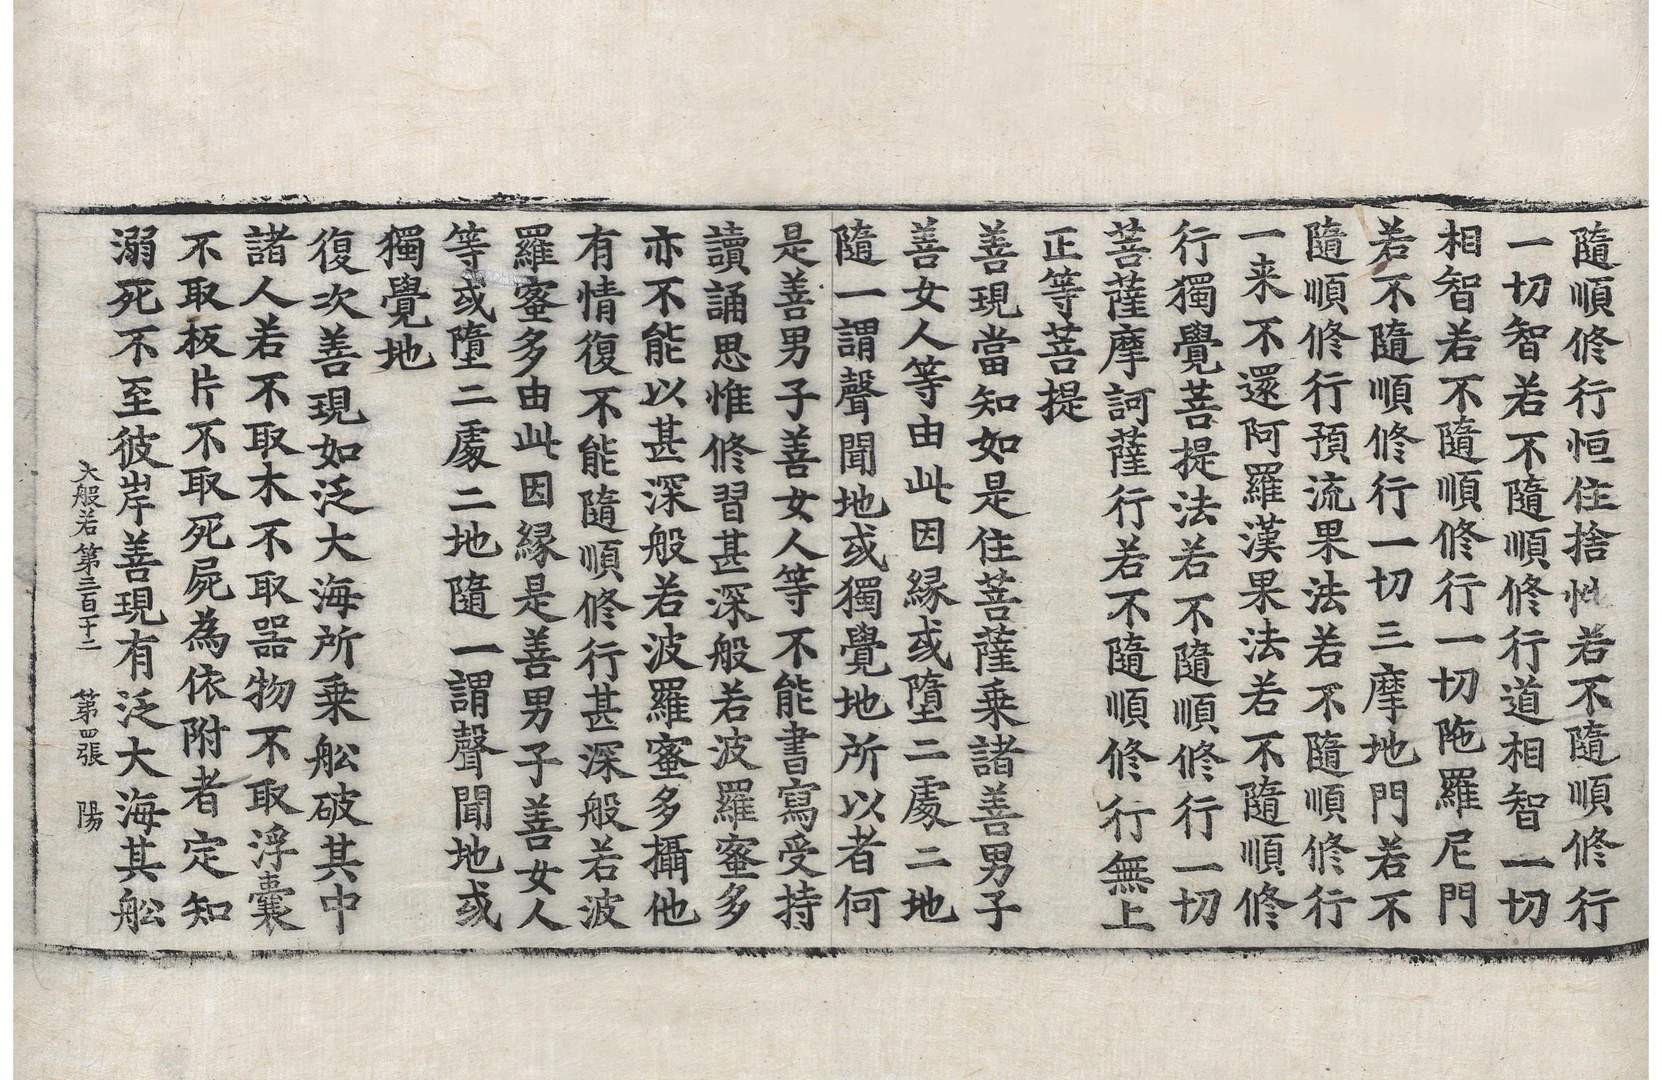 隨順修行恒住捨性若不隨順修行
一切智若不隨順修行道相智一切
相智若不隨順修行一切陁羅尼門
若不隨順修行一切三摩地門若不
隨順修行預流果法若不隨順修行
一来不還阿羅漢果法若不隨順修
行獨覺菩提法若不隨順修行一切
菩薩摩訶薩行若不隨順修行無上
正等菩提
善現當知如是住菩薩乗諸善男子
善女人等由此因縁或墮二處二地
隨一謂聲聞地或獨覺地所以者何
是善男子善女人等不能書寫受持
讀誦思惟修習甚深般若波羅蜜多
亦不能以甚深般若波羅蜜多攝他
有情復不能隨順修行甚深般若波
羅蜜多由此因縁是善男子善女人
等或墮二處二地隨一謂聲聞地或
獨覺地
復次善現如泛大海所乗舩破其中
諸人若不取木不取器物不取浮囊
不取板片不取死屍為依附者定知
溺死不至彼岸善現有泛大海其舩
大般若第三百十二 第四張 陽